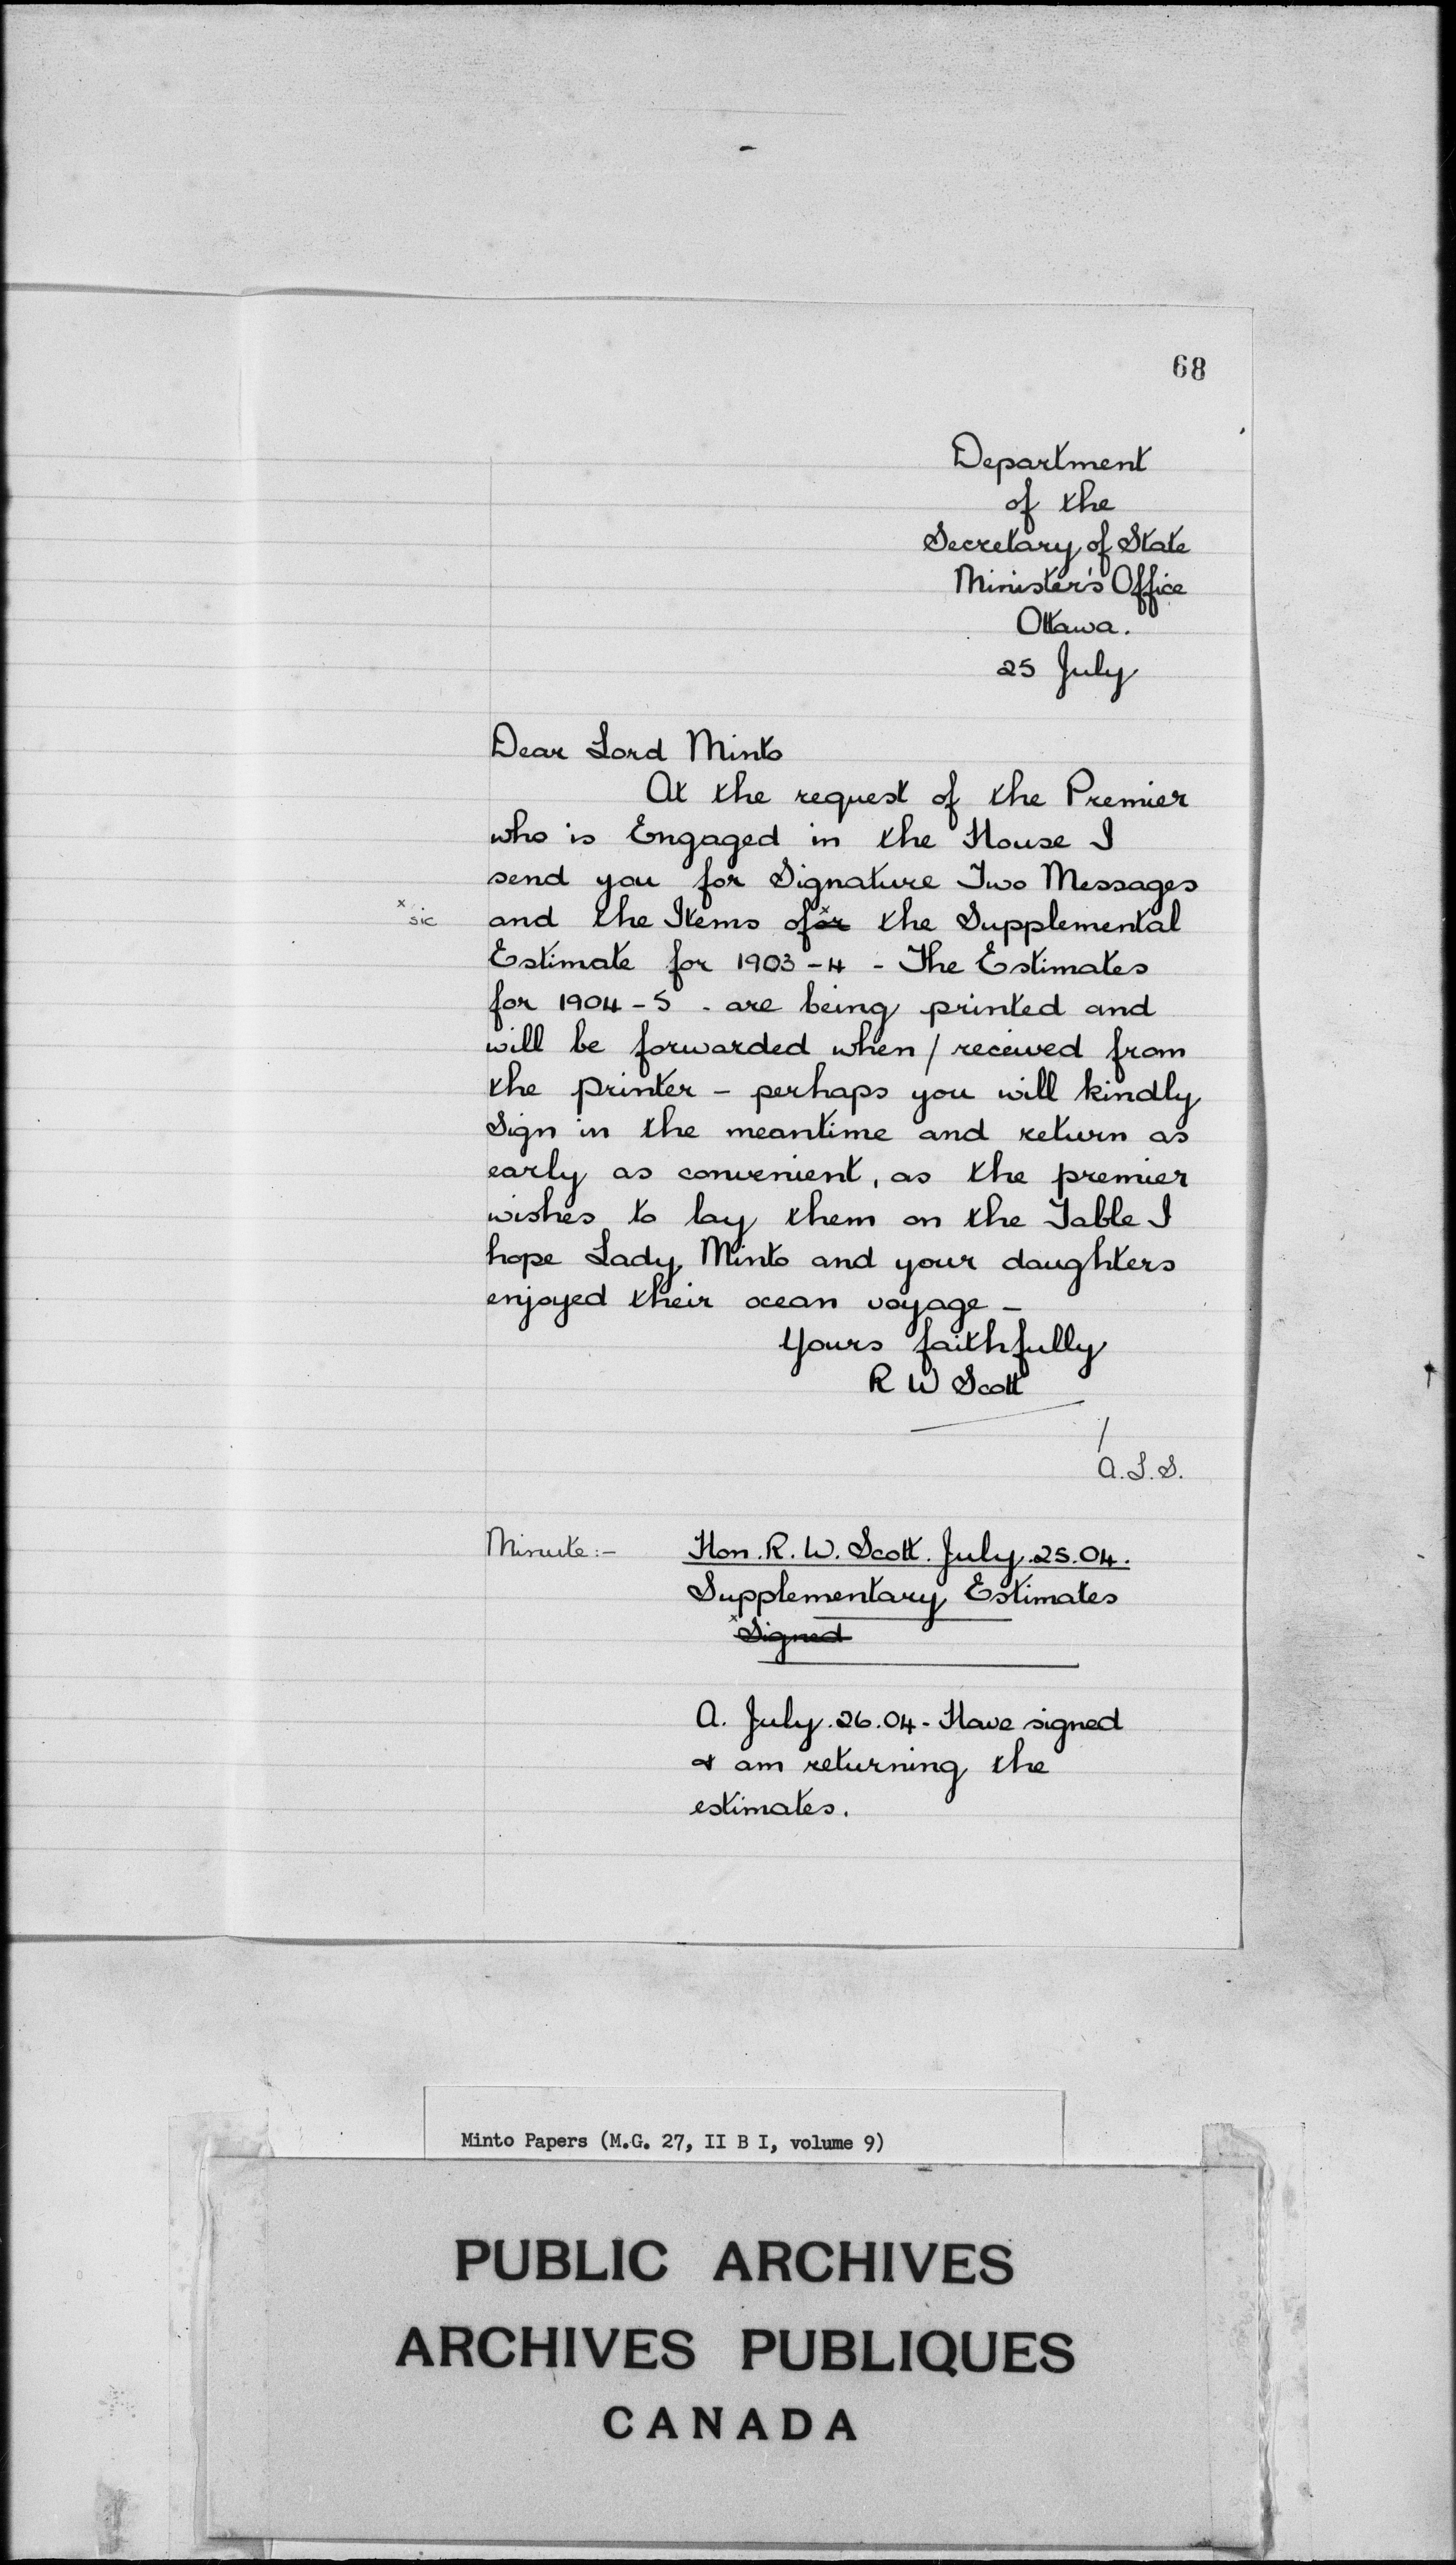 68
Department
of the
Secretary of State
Minister's Office
Ottawa.
25 July
Dear Lord Minto
At the request of the Premier
who is Engaged in the House I
send you for Signature Two Messages
x sic and the Items of x or the Supplemental
Estimate for 1903-4 - The Estimates
for 1904-5 - are being printed and
will be forwarded when / received from
the printer - perhaps you will kindly
Sign in the meantime and return as
early as convenient, as the premier
wishes to lay them on the Table I
hope Lady Minto and your daughters
enjoyed their ocean voyage -
Yours faithfully
R W Scott
A.L.S.
Minute:- Hon. R. W. Scott. July. 25. 04.
Supplementary Estimates
x Signed
A. July. 26. 04 - Have signed
& am returning the
estimates.
Minto Papers (M.G. 27, II B I, volume 9)
PUBLIC ARCHIVES
ARCHIVES PUBLIQUES
CANADA